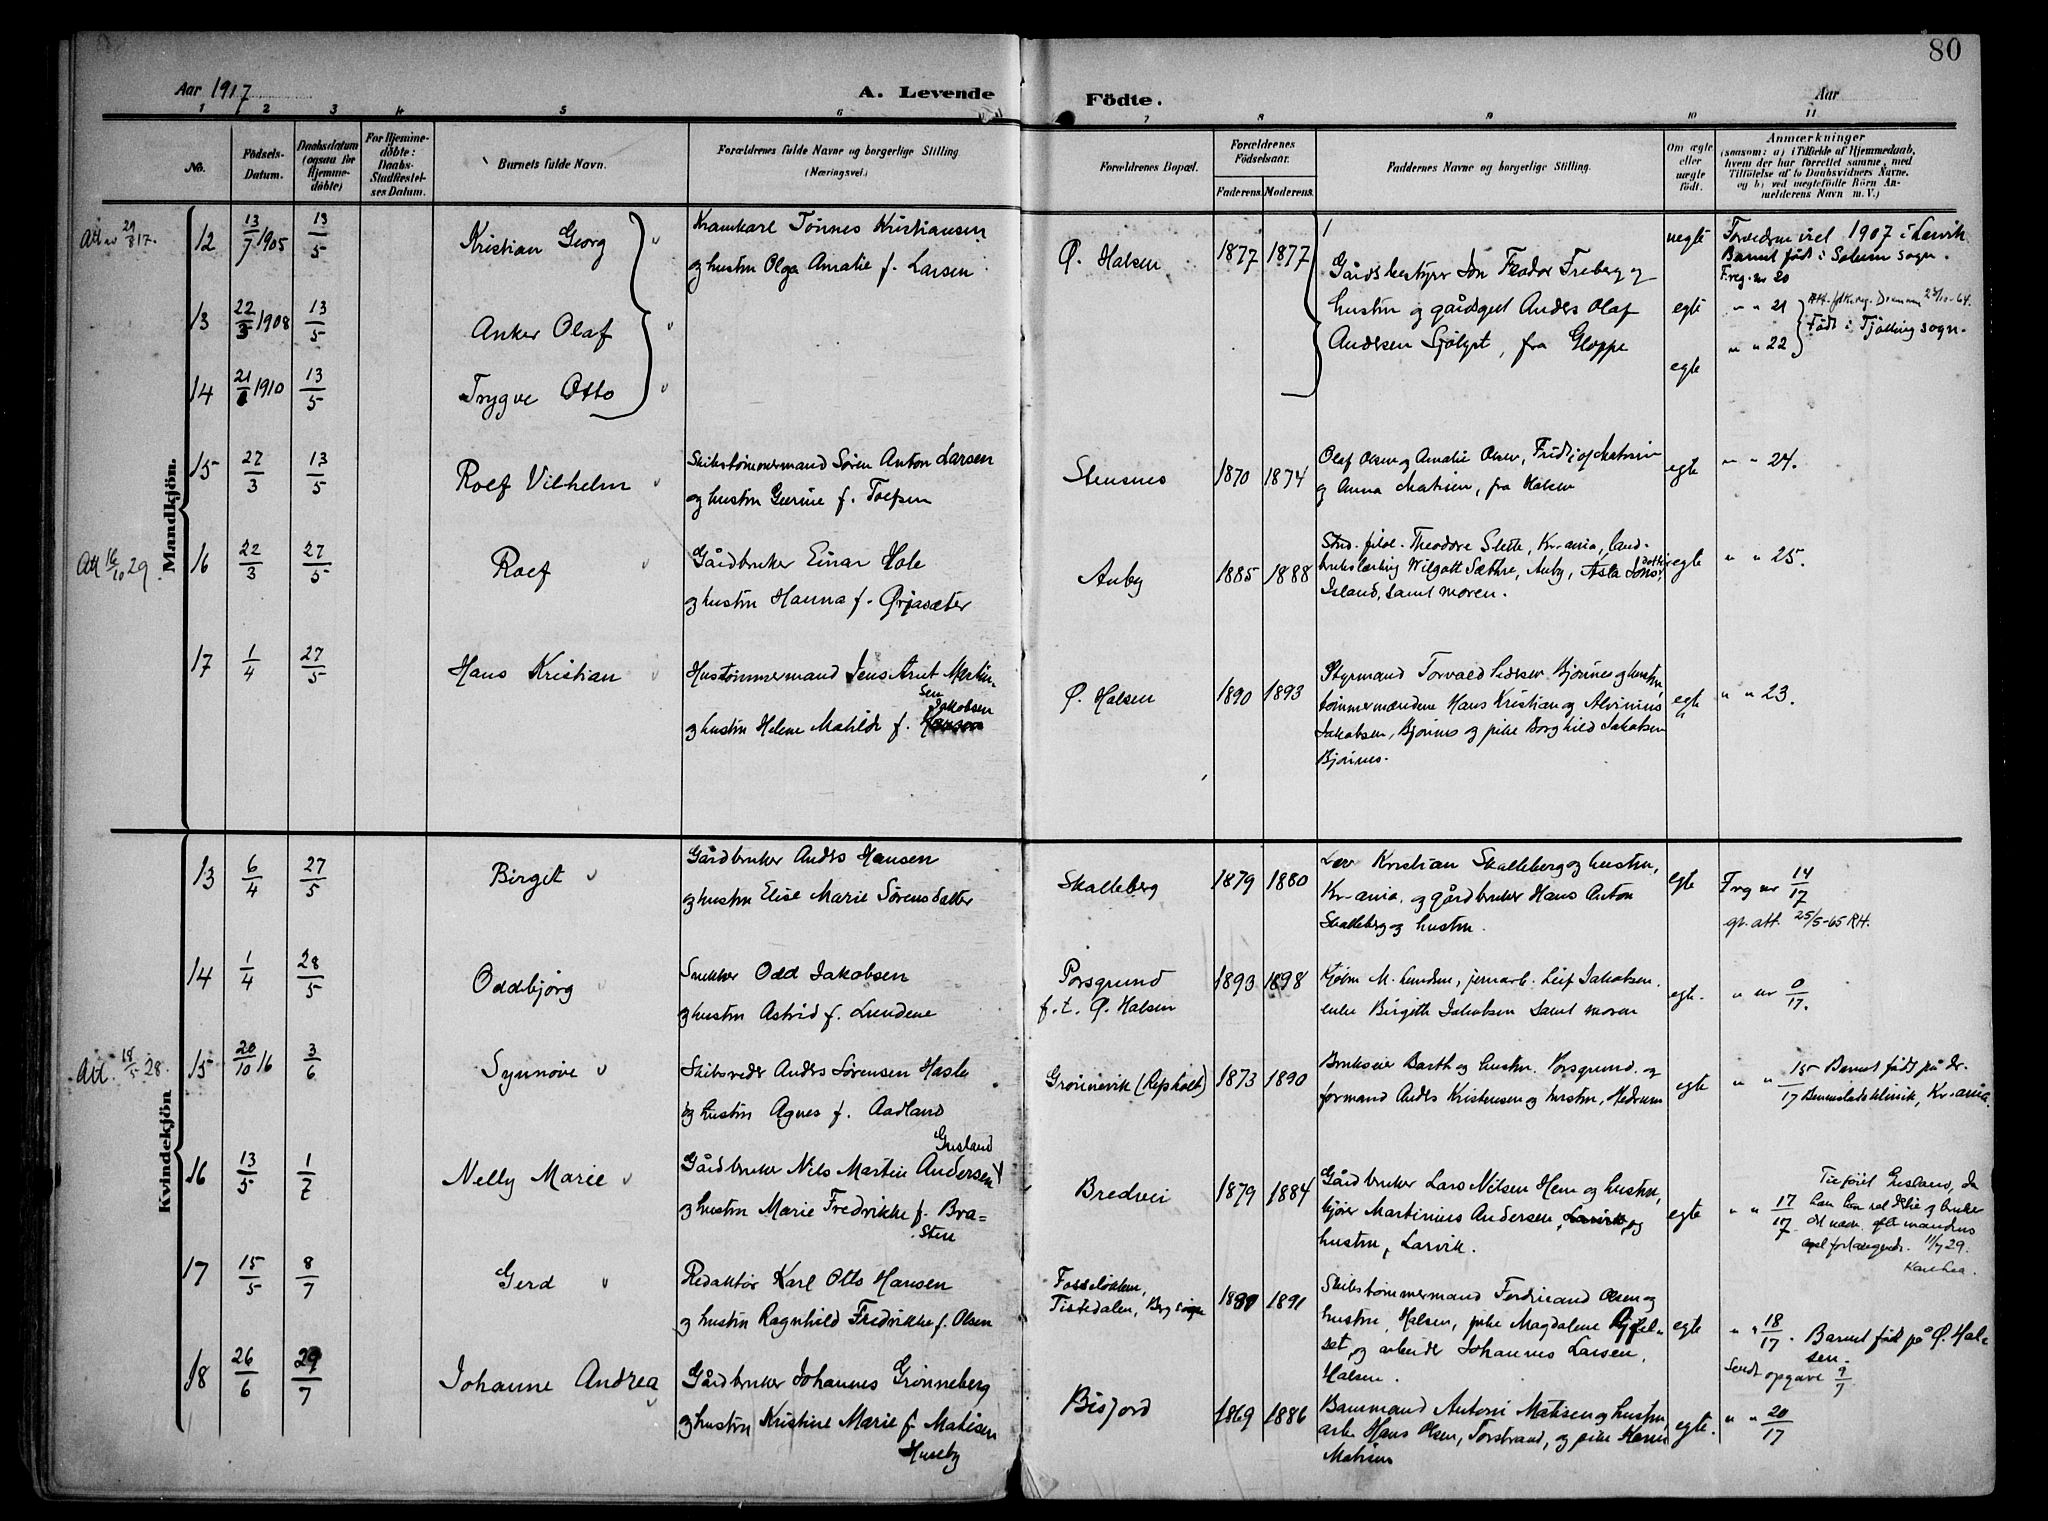 80
Aar 1917
A. Levende
Födte.
Aar
1 2 3 4 5 6 7 8 9 10 11
No.
Födsels-
Datum.
Daabsdatum
(ogsaa for
Hjemme-
döbte)
For Hjemme-
döbte:
Daabs-
Stadfæstel-
ses Datum.
Barnets fulde Navn.
Forældrenes fulde Navne og borgerlige Stilling
(Næringsvei.)
Forældrenes Bopæl.
Forældrenes
Födselsaar.
Faderens. Moderens.
Faddernes Navne og borgerlige Stilling.
Om ægte
eller
uægte
födt.
Anmærkninger
(saasom: a) i Tilfælde af Hjemmedaab,
hvem der har forrettet samme, med
Tilföielse af to Daabsvidners Navne.
og b) ved uegtefödte Börn An-
melderens Navn m. V.)
Mandkjön.
12 13/7 1905 13/5 Kristian Georg
Krankarl Tønnes Kristiansen
og hustru Olga Amalie f. Larsen
Ø. Halsen 1877 1877
Gårdsbestyrer Freberg og
hustru og gårdsgut Anders Olaf
Andersen Sjølyst, fra Gloppe
uegte
1907 i Larvik
Barnet født i Solum sogn.
F.reg. nr 20
13 22/3 1908 13/5 Anker Olaf
egte
" " 21
Født i Tjølling sogn.
14 21/6 1910 13/5 Trygve Otto
egte
" " 22
15 27/3 13/5 Rolf Vilhelm
Skibstømmermand Søren Anton Larsen
og hustru Gurine f. Tolfsen
Stensnes 1870 1874
Olaf Olsen og Amalie Olsen, Fridtjof Matisen
og Anna Matisen, fra Halsen
egte
" " 24.
Att 16/10 29.
16 22/3 27/5 Rolf
Gårdbruker Einar Hole
og hustru Hanna f. Ørjasæter
Auby 1885 1888
Stud. filol. Theodore Slette, Kr-ania, land-
brukslærling Wilgott Sæthre, Auby, Asta Jóns-
datter
Island, samt moren.
egte
" " 25.
17 1/4 27/5 Hans Kristian
Hustømmermand Jens Arnt Martin-
sen
og hustru Helene Matilde f. Jakobsen
Ø. Halsen 1890 1893
Styrmand Torvald Pedersen Bjønnes og hustru,
tømmermændene Hans Kristian og Alvinius
Jakobsen, Bjønnes og pike Borghild Jakobsen
Bjønnes.
egte
" " 23.
Kvindekjön
13 6/4 27/5 Birgit
Gårdbruker Anders Hansen
og hustru Elise Marie Sørensdatter
Skalleberg 1879 1880
Kristian Skalleberg og hustru,
Kr-ania, og gårdbruker Hans Anton
Skalleberg og hustru.
egte
F.reg nr 14/17
gt. att. 25/5-65 RH.
14 1/4 28/5 Oddbjørg
Snekker Odd Jakobsen
og hustru Astrid f. Lundene
Porsgrund
f.t. Ø. Halsen 1893 1898
Kjøbm M. Lunden, jernarb. Leif Jakobsen,
enke Birgithe Jakobsen samt moren
egte.
" nr 0/17.
Att. 18/5 28.
15 20/10 16 3/6 Synnøve
Skibsreder Anders Sørensen Hasle
og hustru Agnes f. Aadland
Grønnevik (Østre Holt) 1873 1890
Brukseier Barth og hustru Porsgrund og
formand Anders Kristensen og hustru, Hedrum
egte
" " 15/17 Barnet født på dr.
klinik, Kr-ania.
16 13/5 1/7 Nelly Marie
Gusland
Gårdbruker Nils Martin Andersen
og hustru Marie Fredrikke f. Bra-
sten
Bredvei 1879 1884
Gårdbruker Lars Nilsen Hem og hustru,
kjører Martinius Andersen, Larvik, og
hustru, Larvik.
egte
" " 17/17
Tilføiet Gusland, da
11/7 29.
17 15/5 8/7 Gerd
Redaktør Karl Otto Hansen
og hustru Ragnhild Fredrikke f. Olsen
Fosseløkken,
Tistedalen, Berg sogn 1889 1891
Skibstømmermand Ferdinand Olsen og
hustru, Halsen, pike Magdalene
og arbeider Johannes Larsen,
Halsen.
egte
" " 18/17. Barnet født på Ø. Hal-
sen.
Sendt opgave 9/7
18 26/6 29/7 Johanne Andrea
Gårdbruker Johannes Grønneberg
og hustru Kristine Marie f. Matisen
Huseby
Bisjord 1869 1886
Banemand Antoni Matisen og hustru,
arb. Hans Olsen, Torstrand, og pike
Matisen
egte.
" " 20/17